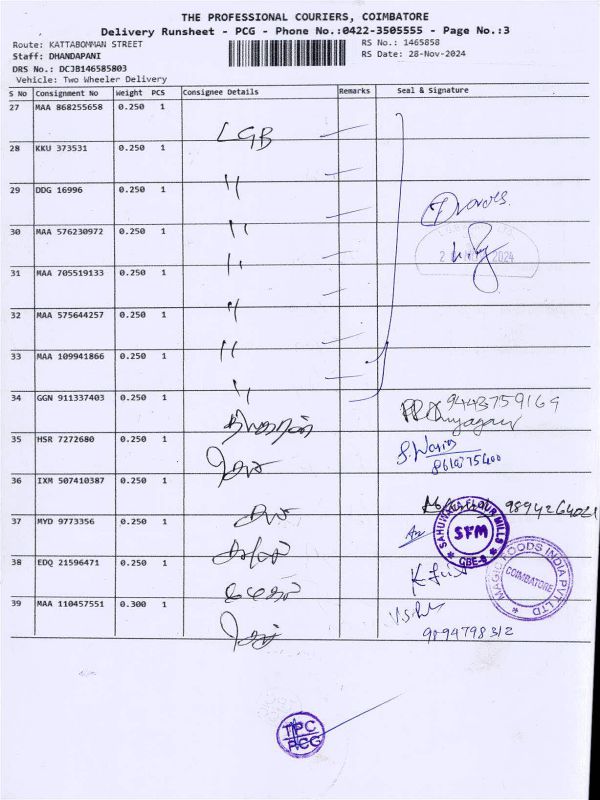 THE PROFESSIONAL COURIERS, COIMBATORE
Delivery Runsheet - PCG - Phone No.:0422-3505555 - Page No.:3
Route: KATTABOMMAN STREET
RS No.: 1465858
Staff: DHANDAPANI
RS Date: 28-Nov-2024
DRS No.: DCJB146585803
Vehicle: Two Wheeler Delivery
S No Consignment No Weight PCS Consignee Details Remarks Seal & Signature
27 MAA 868255658 0.250 1
LGB
28 KKU 373531 0.250 1
"
29 DDG 16996 0.250 1
"
30 MAA 576230972 0.250 1
"
31 MAA 705519133 0.250 1
"
32 MAA 575644257 0.250 1
"
33 MAA 109941866 0.250 1
"
34 GGN 911337403 0.250 1
9443759169
35 HSR 7272680 0.250 1
36 IXM 507410387 0.250 1
37 MYD 9773356 0.250 1
SAHUWALA FLOUR MILLS
SFM
CBE-8
38 EDQ 21596471 0.250 1
MAGIC FOODS INDIA PVT LTD
COIMBATORE
39 MAA 110457551 0.300 1
9894798312
TPC
PCG